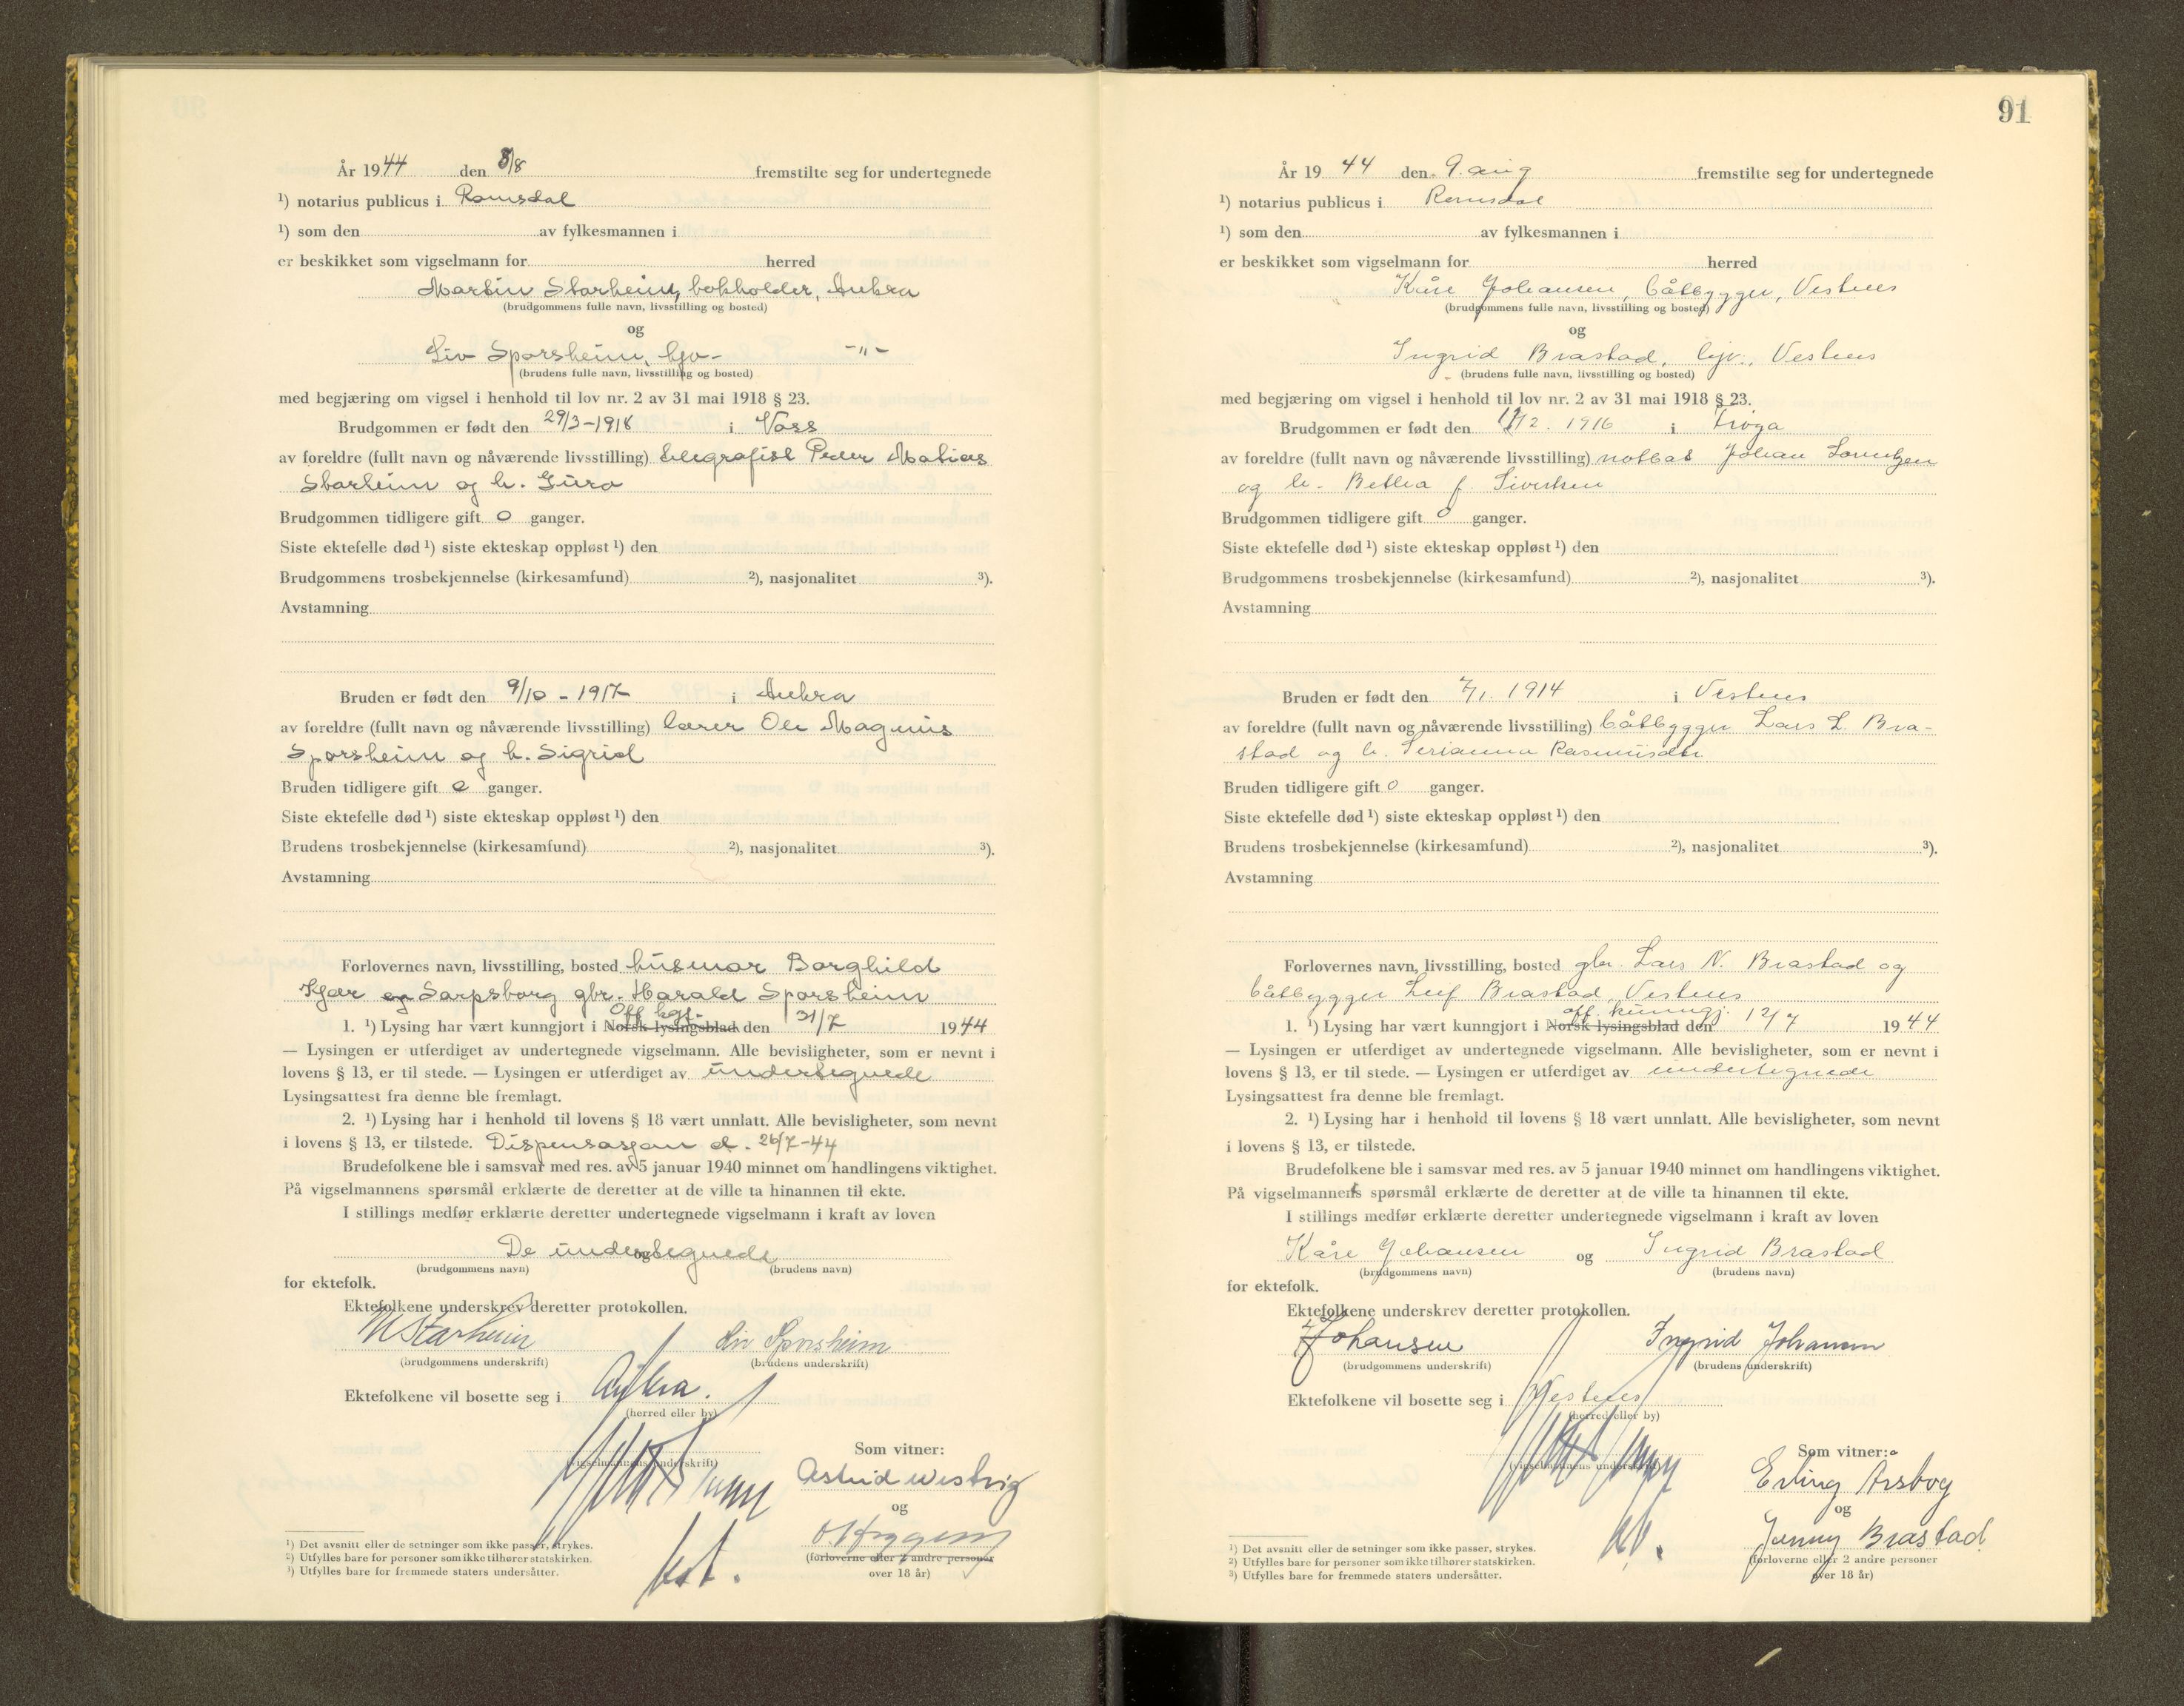 År 1944 den 8/8 fremstilte seg for undertegnede
¹) notarius publicus i Romsdal
¹) som den av fylkesmannen i
er beskikket som vigselmann for herred
Martin Starheim, bokholder, Aukra
(brudgommens fulle navn, livsstilling og bosted)
og
Liv Sporsheim, hjv- -"-
(brudens fulle navn, livsstilling og bosted)
med begjæring om vigsel i henhold til lov nr. 2 av 31 mai 1918 § 23.
Brudgommen er født den 29/3-1918 i Voss
av foreldre (fullt navn og nåværende livsstilling) telegrafist Peder Matias
Starheim og h. Guro
Brudgommen tidligere gift 0 ganger.
Siste ektefelle død ¹) siste ekteskap oppløst ¹) den
Brudgommens trosbekjennelse (kirkesamfund) ²), nasjonalitet ³).
Avstamning
Bruden er født den 9/10 - 1917 i Aukra
av foreldre (fullt navn og nåværende livsstilling) lærer Ole Magnus
Sporsheim og h. Sigrid
Bruden tidligere gift 0 ganger.
Siste ektefelle død ¹) siste ekteskap oppløst ¹) den
Brudens trosbekjennelse (kirkesamfund) ²), nasjonalitet ³).
Avstamning
Forlovernes navn, livsstilling, bosted husmor Borghild
Kjær og Sarpsborg gbr. Harald Sporsheim
Off. kgj.
1. ¹) Lysing har vært kunngjort i Norsk lysingsblad den 31/7 1944
— Lysingen er utferdiget av undertegnede vigselmann. Alle bevisligheter, som er nevnt i
lovens § 13, er til stede. — Lysingen er utferdiget av undertegnede
Lysingsattest fra denne ble fremlagt.
2. ¹) Lysing har i henhold til lovens § 18 vært unnlatt. Alle bevisligheter, som nevnt
i lovens § 13, er tilstede. Dispensasjon d. 26/7-44
Brudefolkene ble i samsvar med res. av 5 januar 1940 minnet om handlingens viktighet.
På vigselmannens spørsmål erklærte de deretter at de ville ta hinannen til ekte.
I stillings medfør erklærte deretter undertegnede vigselmann i kraft av loven
De undertegnede og
(brudgommens navn) (brudens navn)
for ektefolk.
Ektefolkene underskrev deretter protokollen.
M Starheim Liv Sporsheim
(brudgommens underskrift) (brudens underskrift)
Ektefolkene vil bosette seg i Aukra.
(herred eller by)
Som vitner:
(vigselmannens underskrift)
Astrid Westvig
og
(forloverne eller 2 andre personer
over 18 år)
kst.
¹) Det avsnitt eller de setninger som ikke passer, strykes.
²) Utfylles bare for personer som ikke tilhører statskirken.
³) Utfylles bare for fremmede staters undersåtter.
91
År 1944 den 9. aug fremstilte seg for undertegnede
¹) notarius publicus i Romsdal
¹) som den av fylkesmannen i
er beskikket som vigselmann for herred
Kåre Johansen, båtbygger, Vestnes
(brudgommens fulle navn, livsstilling og bosted)
og
Ingrid Brastad, hjv., Vestnes
(brudens fulle navn, livsstilling og bosted)
med begjæring om vigsel i henhold til lov nr. 2 av 31 mai 1918 § 23.
Brudgommen er født den /2. 1916 i
av foreldre (fullt navn og nåværende livsstilling) notbas Johan Lorentzen
og h. Betha f. Sivertsen
Brudgommen tidligere gift 0 ganger.
Siste ektefelle død ¹) siste ekteskap oppløst ¹) den
Brudgommens trosbekjennelse (kirkesamfund) ²), nasjonalitet ³).
Avstamning
Bruden er født den 7/1. 1914 i Vestnes
av foreldre (fullt navn og nåværende livsstilling) båtbygger Lars L. Bra-
stad og h. Serianna Rasmusdtr
Bruden tidligere gift 0 ganger.
Siste ektefelle død ¹) siste ekteskap oppløst ¹) den
Brudens trosbekjennelse (kirkesamfund) ²), nasjonalitet ³).
Avstamning
Forlovernes navn, livsstilling, bosted gbr. Lars N. Brastad og
båtbygger Leif Brastad, Vestnes
off. kunngj.
1. ¹) Lysing har vært kunngjort i Norsk lysingsblad den 12/7 1944
— Lysingen er utferdiget av undertegnede vigselmann. Alle bevisligheter, som er nevnt i
lovens § 13, er til stede. — Lysingen er utferdiget av undertegnede
Lysingsattest fra denne ble fremlagt.
2. ¹) Lysing har i henhold til lovens § 18 vært unnlatt. Alle bevisligheter, som nevnt
i lovens § 13, er tilstede.
Brudefolkene ble i samsvar med res. av 5 januar 1940 minnet om handlingens viktighet.
På vigselmannens spørsmål erklærte de deretter at de ville ta hinannen til ekte.
I stillings medfør erklærte deretter undertegnede vigselmann i kraft av loven
Kåre Johansen og Ingrid Brastad
(brudgommens navn) (brudens navn)
for ektefolk.
Ektefolkene underskrev deretter protokollen.
Johansen Ingrid Johansen
(brudgommens underskrift) (brudens underskrift)
Ektefolkene vil bosette seg i Vestnes
(herred eller by)
Som vitner:
(vigselmannens underskrift)
Erling Arsbog
og
Jenny Brastad
(forloverne eller 2 andre personer
over 18 år)
¹) Det avsnitt eller de setninger som ikke passer, strykes.
²) Utfylles bare for personer som ikke tilhører statskirken.
³) Utfylles bare for fremmede staters undersåtter.